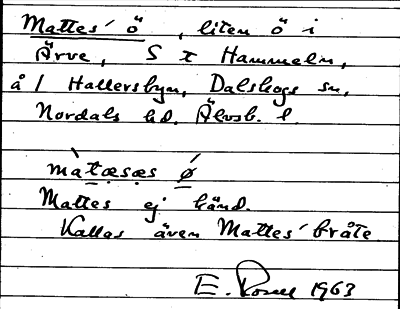 Mattes' ö, liten ö i
Ärve, S t Hammeln,
å / Hallersbyn, Dalskogs sn,
Nordals hd. Älvsb. l.
màtæsæs ǿ
Mattes ej känd.
Kallas även Mattes' bråte
E. 1963